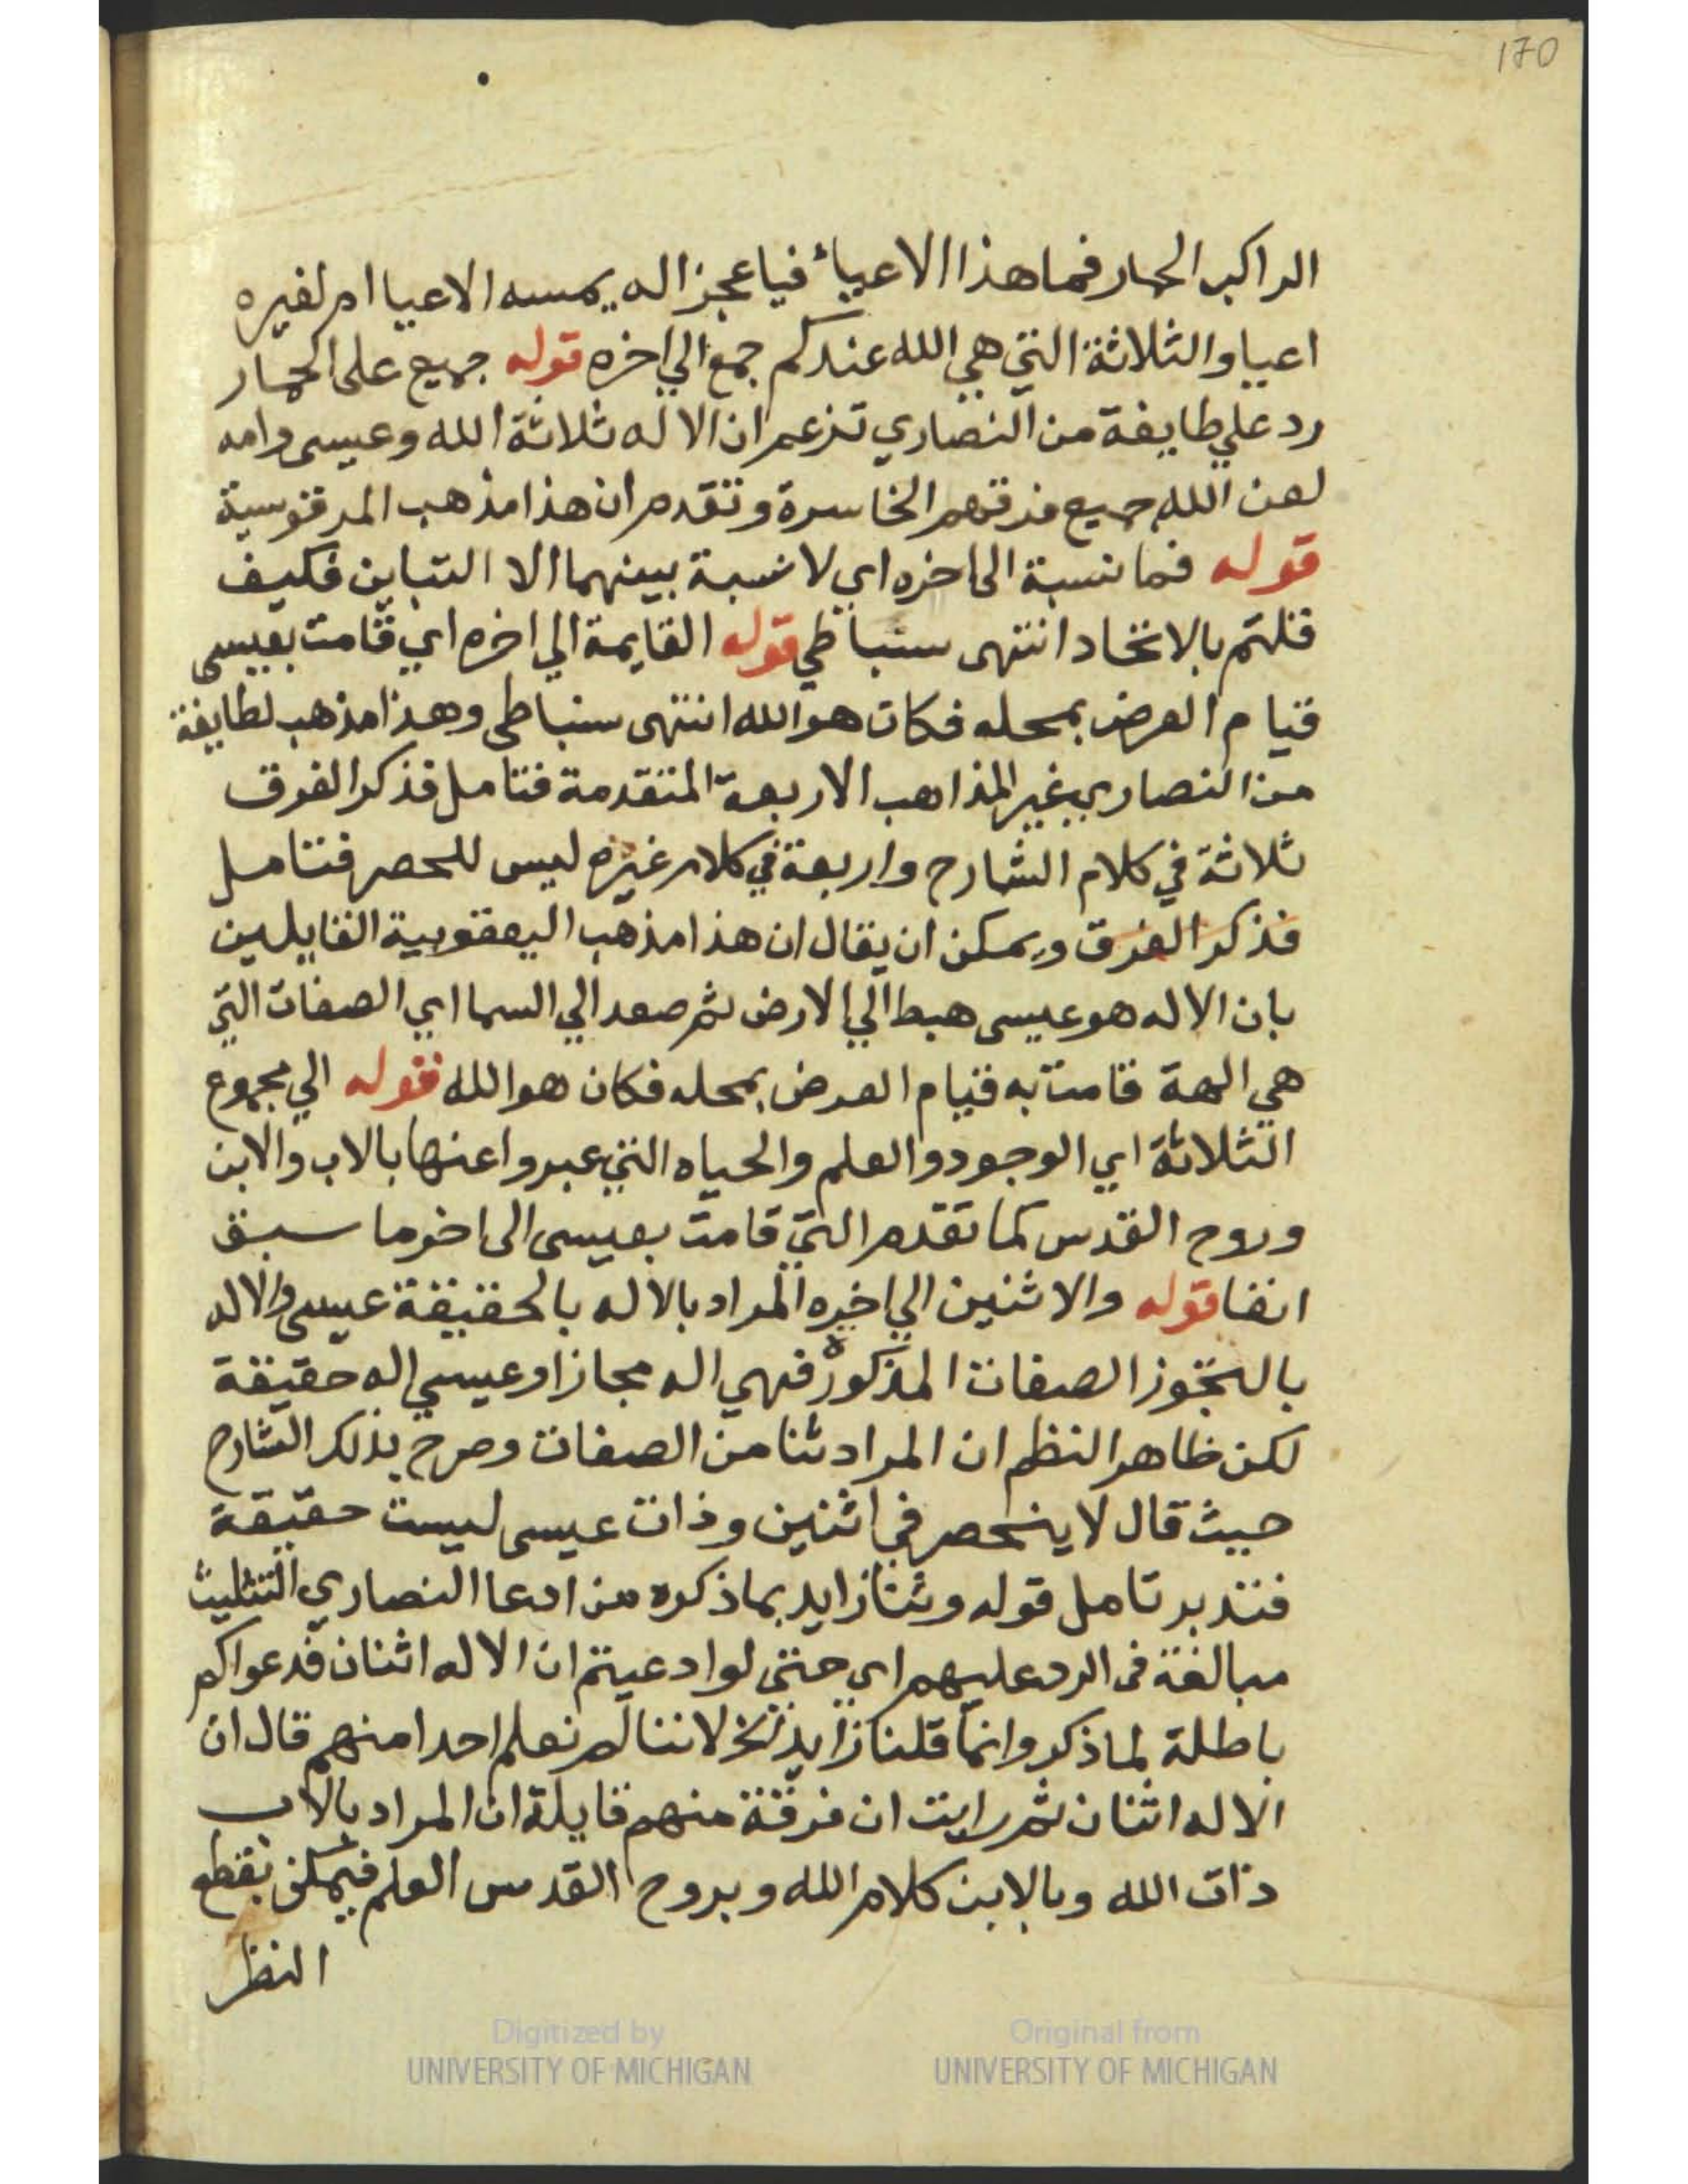 170
الراكب الحمار فما هذا الاعياء فيا عجز اله يمسه الاعيا ام لغيره
اعيا والثلاثة التي هي الله عندكم جمع الي اخره قوله جميع على الحمار
رد علي طايفة من النصاري تزعم ان الاله ثلاثة الله وعيسى وامه
لعن الله جميع فرقهم الخاسرة وتقدم ان هذا مذهب المرقوسية
قوله فما نسبة الى اخره اي لا نسبة بينهما الا التباين فكيف
قلتم بالاتحاد انتهى سنباطي قوله القايمة الي اخره اي قامت بعيسى
قيام العرض بمحله فكان هو الله انتهى سنباطى وهذا مذهب لطايفة
من النصاري غير المذاهب الاربعة المتقدمة فتامل فذكر الفرق
ثلاثة في كلام الشارح واربعة في كلام غيره ليس للحصر فتامل
فذكر الفرق ويمكن ان يقال ان هذا مذهب اليعقوبية القايلين
بان الاله هو عيسى هبط الي الارض ثم صعد الي السما اي الصفات التي
هي الهة قامت به قيام العرض بمحله فكان هو الله قوله الي مجموع
الثلاثة اي الوجود والعلم والحياه التي عبروا عنها بالاب والابن
وروح القدس كما تقدم التي قامت بعيسى الى اخر ما سبق
انفا قوله والاثنين الي اخره المراد بالاله بالحقيقة عيسى والاله
بالتجوز الصفات المذكورة فهي اله مجازا وعيسي اله حقيقة
لكن ظاهر النظم ان المراد ثنا من الصفات وصرح بذلك الشارح
حيث قال لا ينحصر في اثنين وذات عيسى ليست حقيقة
فتدبر تامل قوله وثنا زايد بما ذكره من ادعا النصاري التثليث
مبالغة فى الرد عليهم اي حتى لو ادعيتم ان الاله اثنان فدعواكم
باطلة لما ذكر وانما قلنا زايد الخ لاننا لم نعلم احدا منهم قال ان
الاله اثنان ثم رايت ان فرقة منهم قايلة ان المراد بالاب
ذات الله وبالابن كلام الله وبروح القدس العلم فيمكن بقطع
النظر
Digitized by
UNIVERSITY OF MICHIGAN
Original from
UNIVERSITY OF MICHIGAN